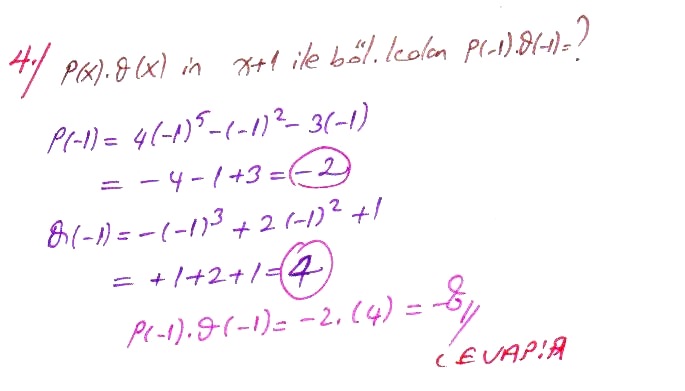 4./ P(x).Q(x) in x+1 ile böl. kalan P(-1).Q(-1)=?
P(-1) = 4(-1)⁵-(-1)²-3(-1)
= -4-1+3=-2
Q(-1)=-(-1)³+2(-1)²+1
= +1+2+1=4
P(-1).Q(-1)=-2.(4)=-8//
CEVAP:A